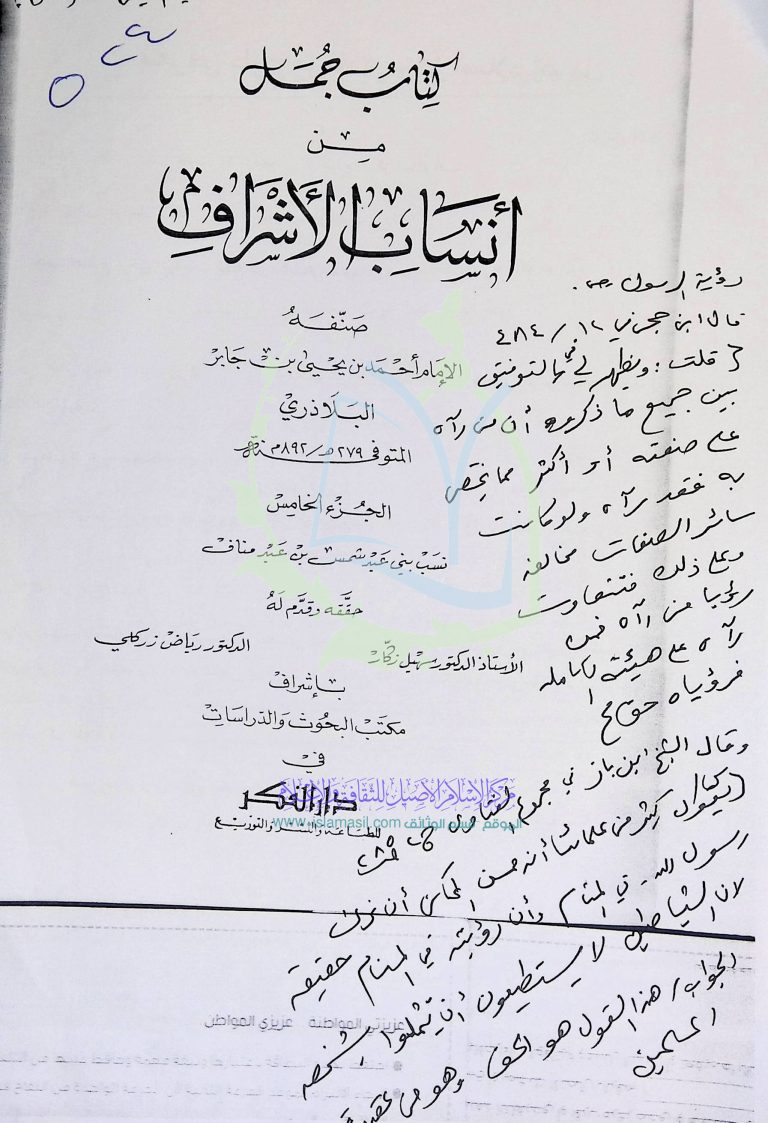 كِتَابُ جُمَل
مِن
أَنسَابِ الأَشرَافِ
صَنَّفَهُ
الإمَام أحْمَد بن يَحْيَى بن جَابِر
البَلَاذري
المتوفى ٢٧٩هـ/٨٩٢م
الجزء الخامس
نسَب بني عَبد شمس بن عَبد مناف
حقّقه وقدّم لَهُ
الأستاذ الدكتور سهيل زكّار
الدكتور رياض زركلي
بإشراف
مكتب البحوث والدراسات
في
دار الفكر
للطباعة والنشر والتوزيع
مركز الإسلام الأصيل للثقافة والإعلام
الموقع قسم الوثائق www.islamasil.com
رؤية الرسول
قال ابن حجر في ١٢/٣٨٤
{ قلت: ويظهر لي في التوفيق
بين جميع ما ذكروه أن من رآه
على صفته أو أكثر مما يختص
به فقد رآه ولو كانت
سائر الصفات مخالفة
وعلى ذلك فتتفاوت
رؤيا من رآه فمن
رآه على هيئته الكاملة
فرؤياه حق
وقال الشيخ ابن باز في مجموع الفتاوى
(يقول كثير من علمائنا أنه من الممكن أن نرى
رسول الله في المنام وأن رؤيته في المنام حقيقة
لان الشياطين لا يستطيعون أن يتمثلوا بشخصه
الجواب/ هذا القول هو الحق وهو من عقيدة
المسلمين
عزيزتي المواطنة عزيزي المواطن